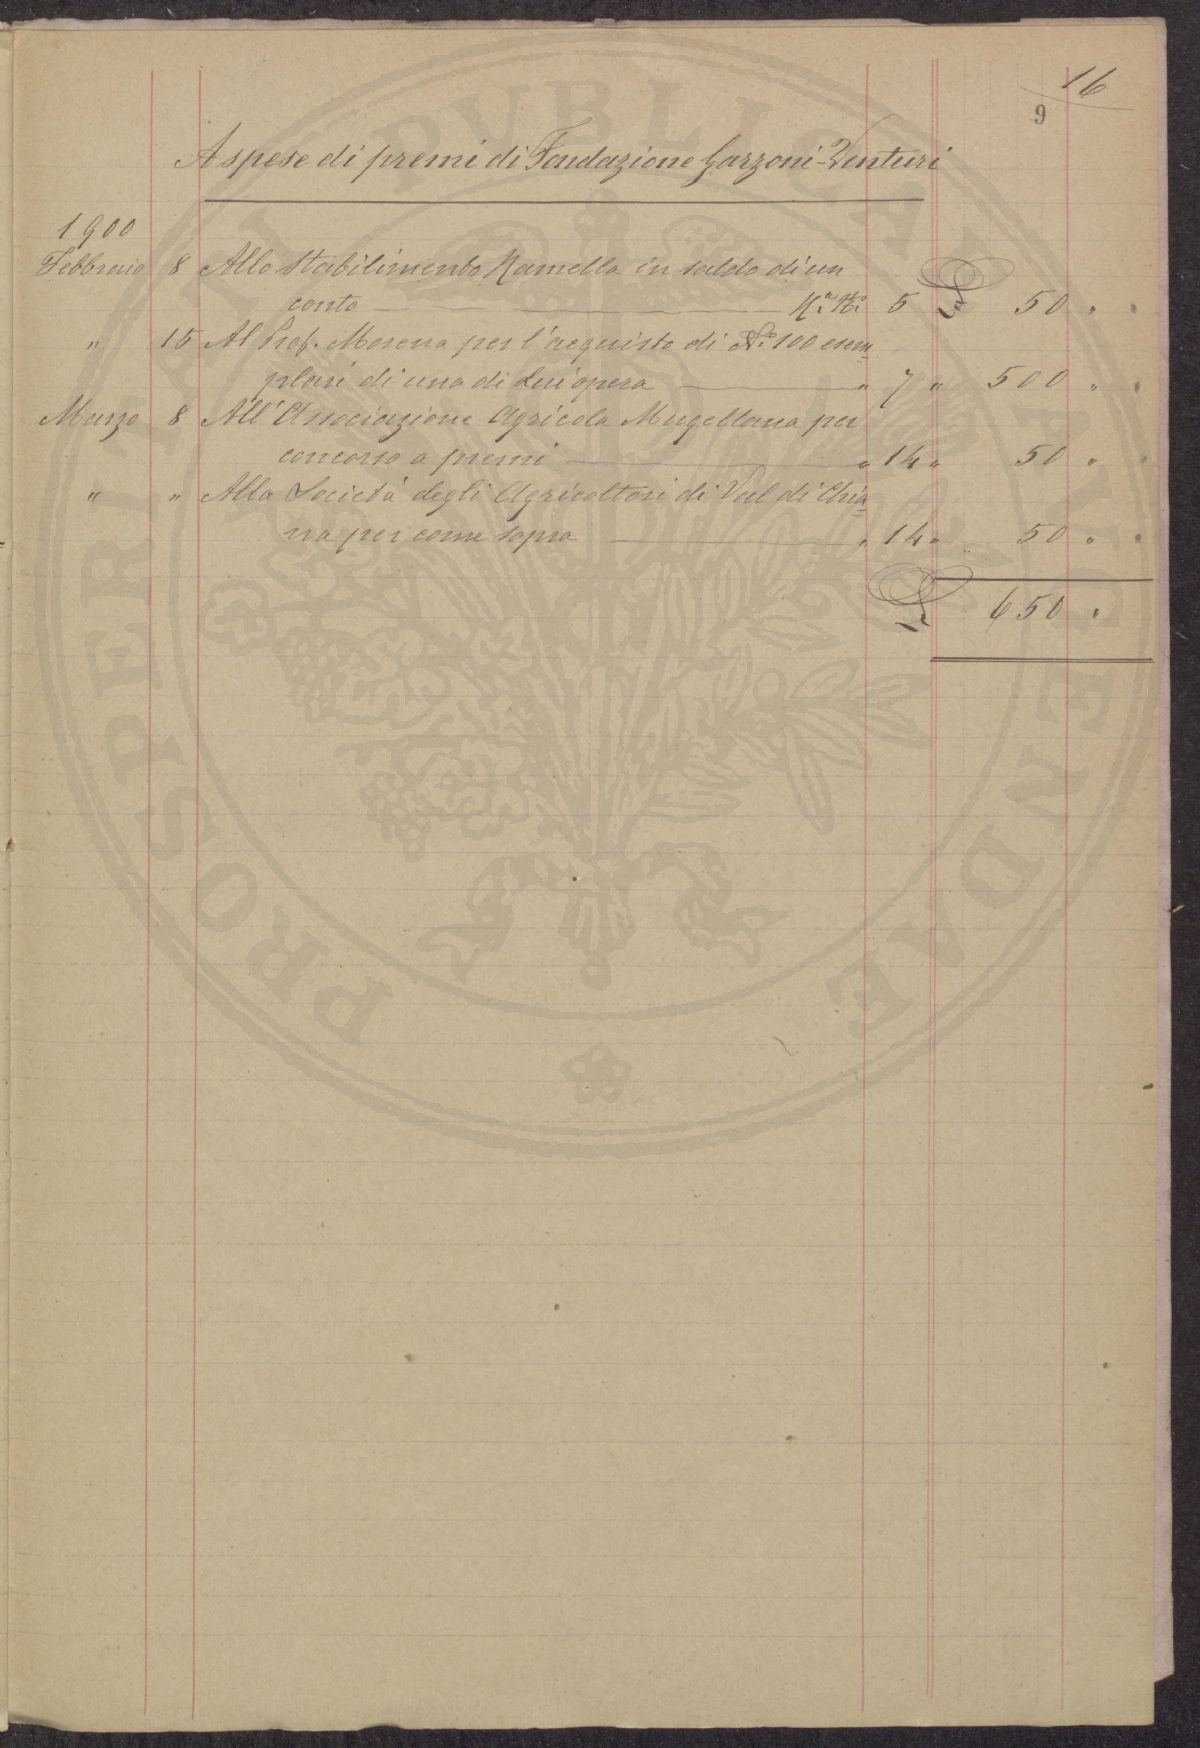 16
9
A spese di premi di Fondazione Garzoni-Venturi
1900
Febbraio 8 Allo Stabilimento Ramella in saldo di un
conto 5 £ 50 "
" 15 Al Prof. Morena per l'acquisto di No. 100 esem
plari di una di Lui opera " 7 " 500 "
Marzo 8 All'Associazione Agricola Mugellana per
concorso a premi " 14 " 50 "
" " Alla Società degli Agricoltori di Val di Chia
na per come sopra " 14 " 50 "
£ 650 "
PROSPERITATI PVBLICAE AVGENDAE